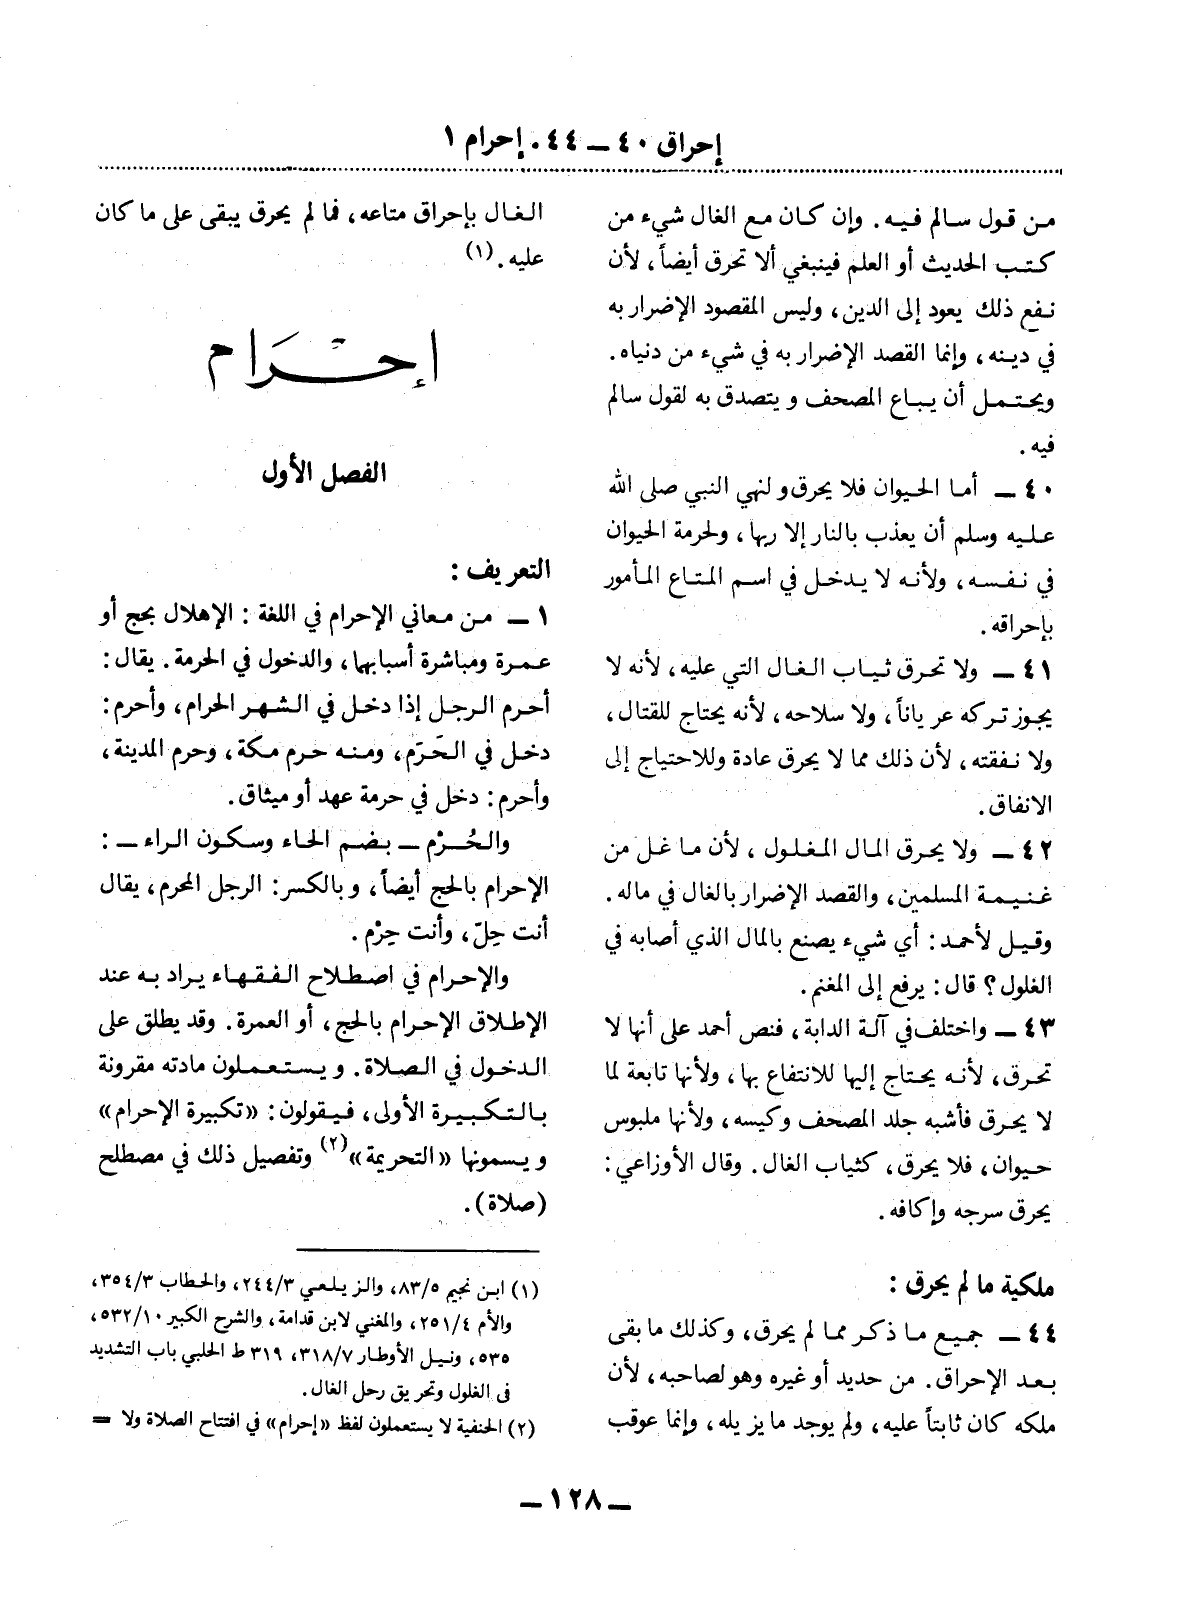 إحراق ٤٠ ــ ٤٤ . إحرام ١
من قول سالم فيه . وإن كان مع الغال شيء من
كتب الحديث أو العلم فينبغي ألا تحرق أيضاً ، لأن
نفع ذلك يعود إلى الدين ، وليس المقصود الإضرار به
في دينه ، وإنما القصد الإضرار به في شيء من دنياه .
ويحتمل أن يباع المصحف ويتصدق به لقول سالم
فيه .
٤٠ ــ أما الحيوان فلا يحرق و لنهي النبي صلى الله
عليه وسلم أن يعذب بالنار إلا ربها ، ولحرمة الحيوان
في نفسه ، ولأنه لا يدخل في اسم المتاع المأمور
بإحراقه .
٤١ ــ ولا تحرق ثياب الغال التي عليه ، لأنه لا
يجوز تركه عرياناً ، ولا سلاحه ، لأنه يحتاج للقتال ،
ولا نفقته ، لأن ذلك مما لا يحرق عادة وللاحتياج إلى
الانفاق .
٤٢ ــ ولا يحرق المال المغلول ، لأن ما غل من
غنيمة المسلمين ، والقصد الإضرار بالغال في ماله .
وقيل لأحمد : أي شيء يصنع بالمال الذي أصابه في
الغلول ؟ قال : يرفع إلى المغنم .
٤٣ ــ واختلف في آلة الدابة ، فنص أحمد على أنها لا
تحرق ، لأنه يحتاج إليها للانتفاع بها ، ولأنها تابعة لما
لا يحرق فأشبه جلد المصحف وكيسه ، ولأنها ملبوس
حيوان ، فلا يحرق ، كثياب الغال . وقال الأوزاعي :
يحرق سرجه وإكافه .
ملكية ما لم يحرق :
٤٤ ــ جميع ما ذكر مما لم يحرق ، وكذلك ما بقى
بعد الإحراق . من حديد أو غيره وهو لصاحبه ، لأن
ملكه كان ثابتاً عليه ، ولم يوجد ما يزيله ، وإنما عوقب
الغال بإحراق متاعه ، فما لم يحرق يبقى على ما كان
عليه . (١)
إحْرَام
الفصل الأول
التعريف :
١ ــ من معاني الإحرام في اللغة : الإهلال بحج أو
عمرة ومباشرة أسبابها ، والدخول في الحرمة . يقال :
أحرم الرجل إذا دخل في الشهر الحرام ، وأحرم :
دخل في الحَرَم ، ومنه حرم مكة ، وحرم المدينة ،
وأحرم : دخل في حرمة عهد أو ميثاق .
والحُرْم ــ بضم الحاء وسكون الراء ــ :
الإحرام بالحج أيضاً ، وبالكسر : الرجل المحرم ، يقال
أنت حِلّ ، وأنت حِرْم .
والإحرام في اصطلاح الفقهاء يراد به عند
الإطلاق الإحرام بالحج ، أو العمرة . وقد يطلق على
الدخول في الصلاة . ويستعملون مادته مقرونة
بالتكبيرة الأولى ، فيقولون : «تكبيرة الإحرام»
ويسمونها «التحريمة» (٢) وتفصيل ذلك في مصطلح
(صلاة) .
(١) ابن نجيم ٥/٨٣ ، والزيلعي ٣/٢٤٤ ، والحطاب ٣/٣٥٤ ،
والأم ٤/٢٥١ ، والمغني لابن قدامة ، والشرح الكبير ١٠/٥٣٢ ،
٥٣٥ ، ونيل الأوطار ٧/٣١٨ ، ٣١٩ ط الحلبي باب التشديد
فى الغلول وتحريق رحل الغال .
(٢) الحنفية لا يستعملون لفظ «إحرام» في افتتاح الصلاة ولا =
ــ ١٢٨ ــ